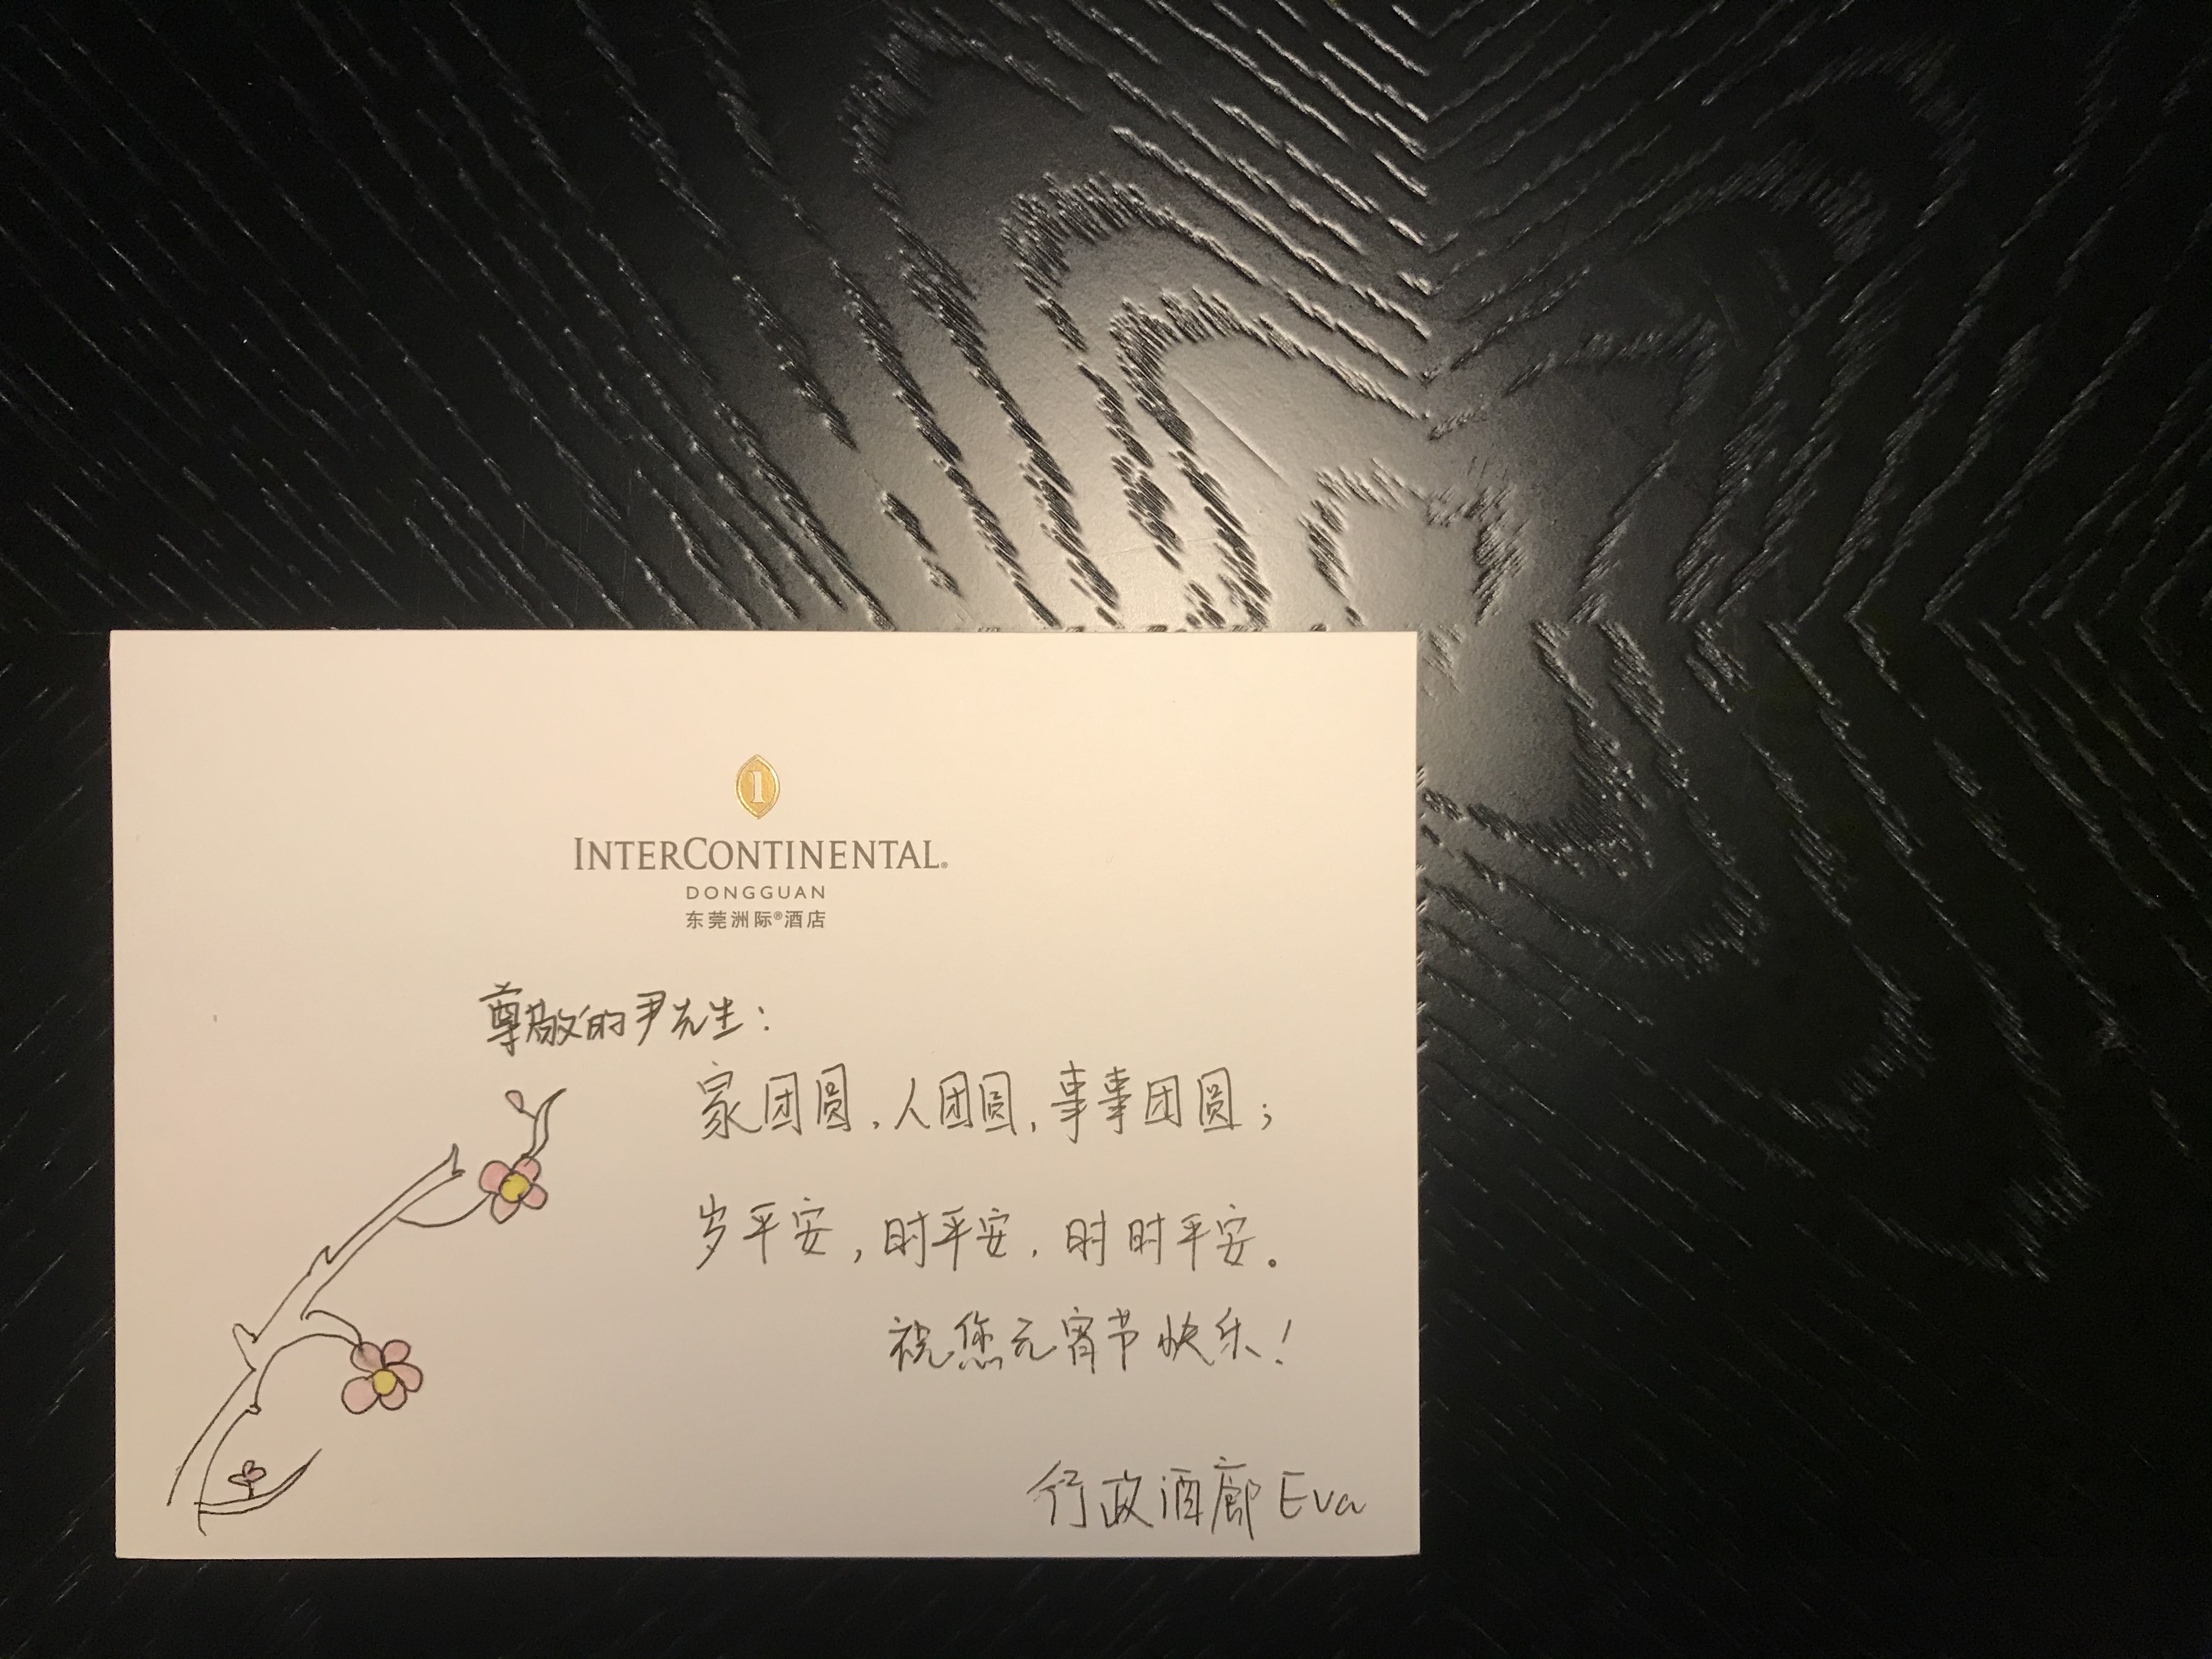 I
INTERCONTINENTAL®
DONGGUAN
东莞洲际®酒店
尊敬的尹先生：
家团圆，人团圆，事事团圆；
岁平安，时平安，时时平安。
祝您元宵节快乐！
行政酒廊 Eva